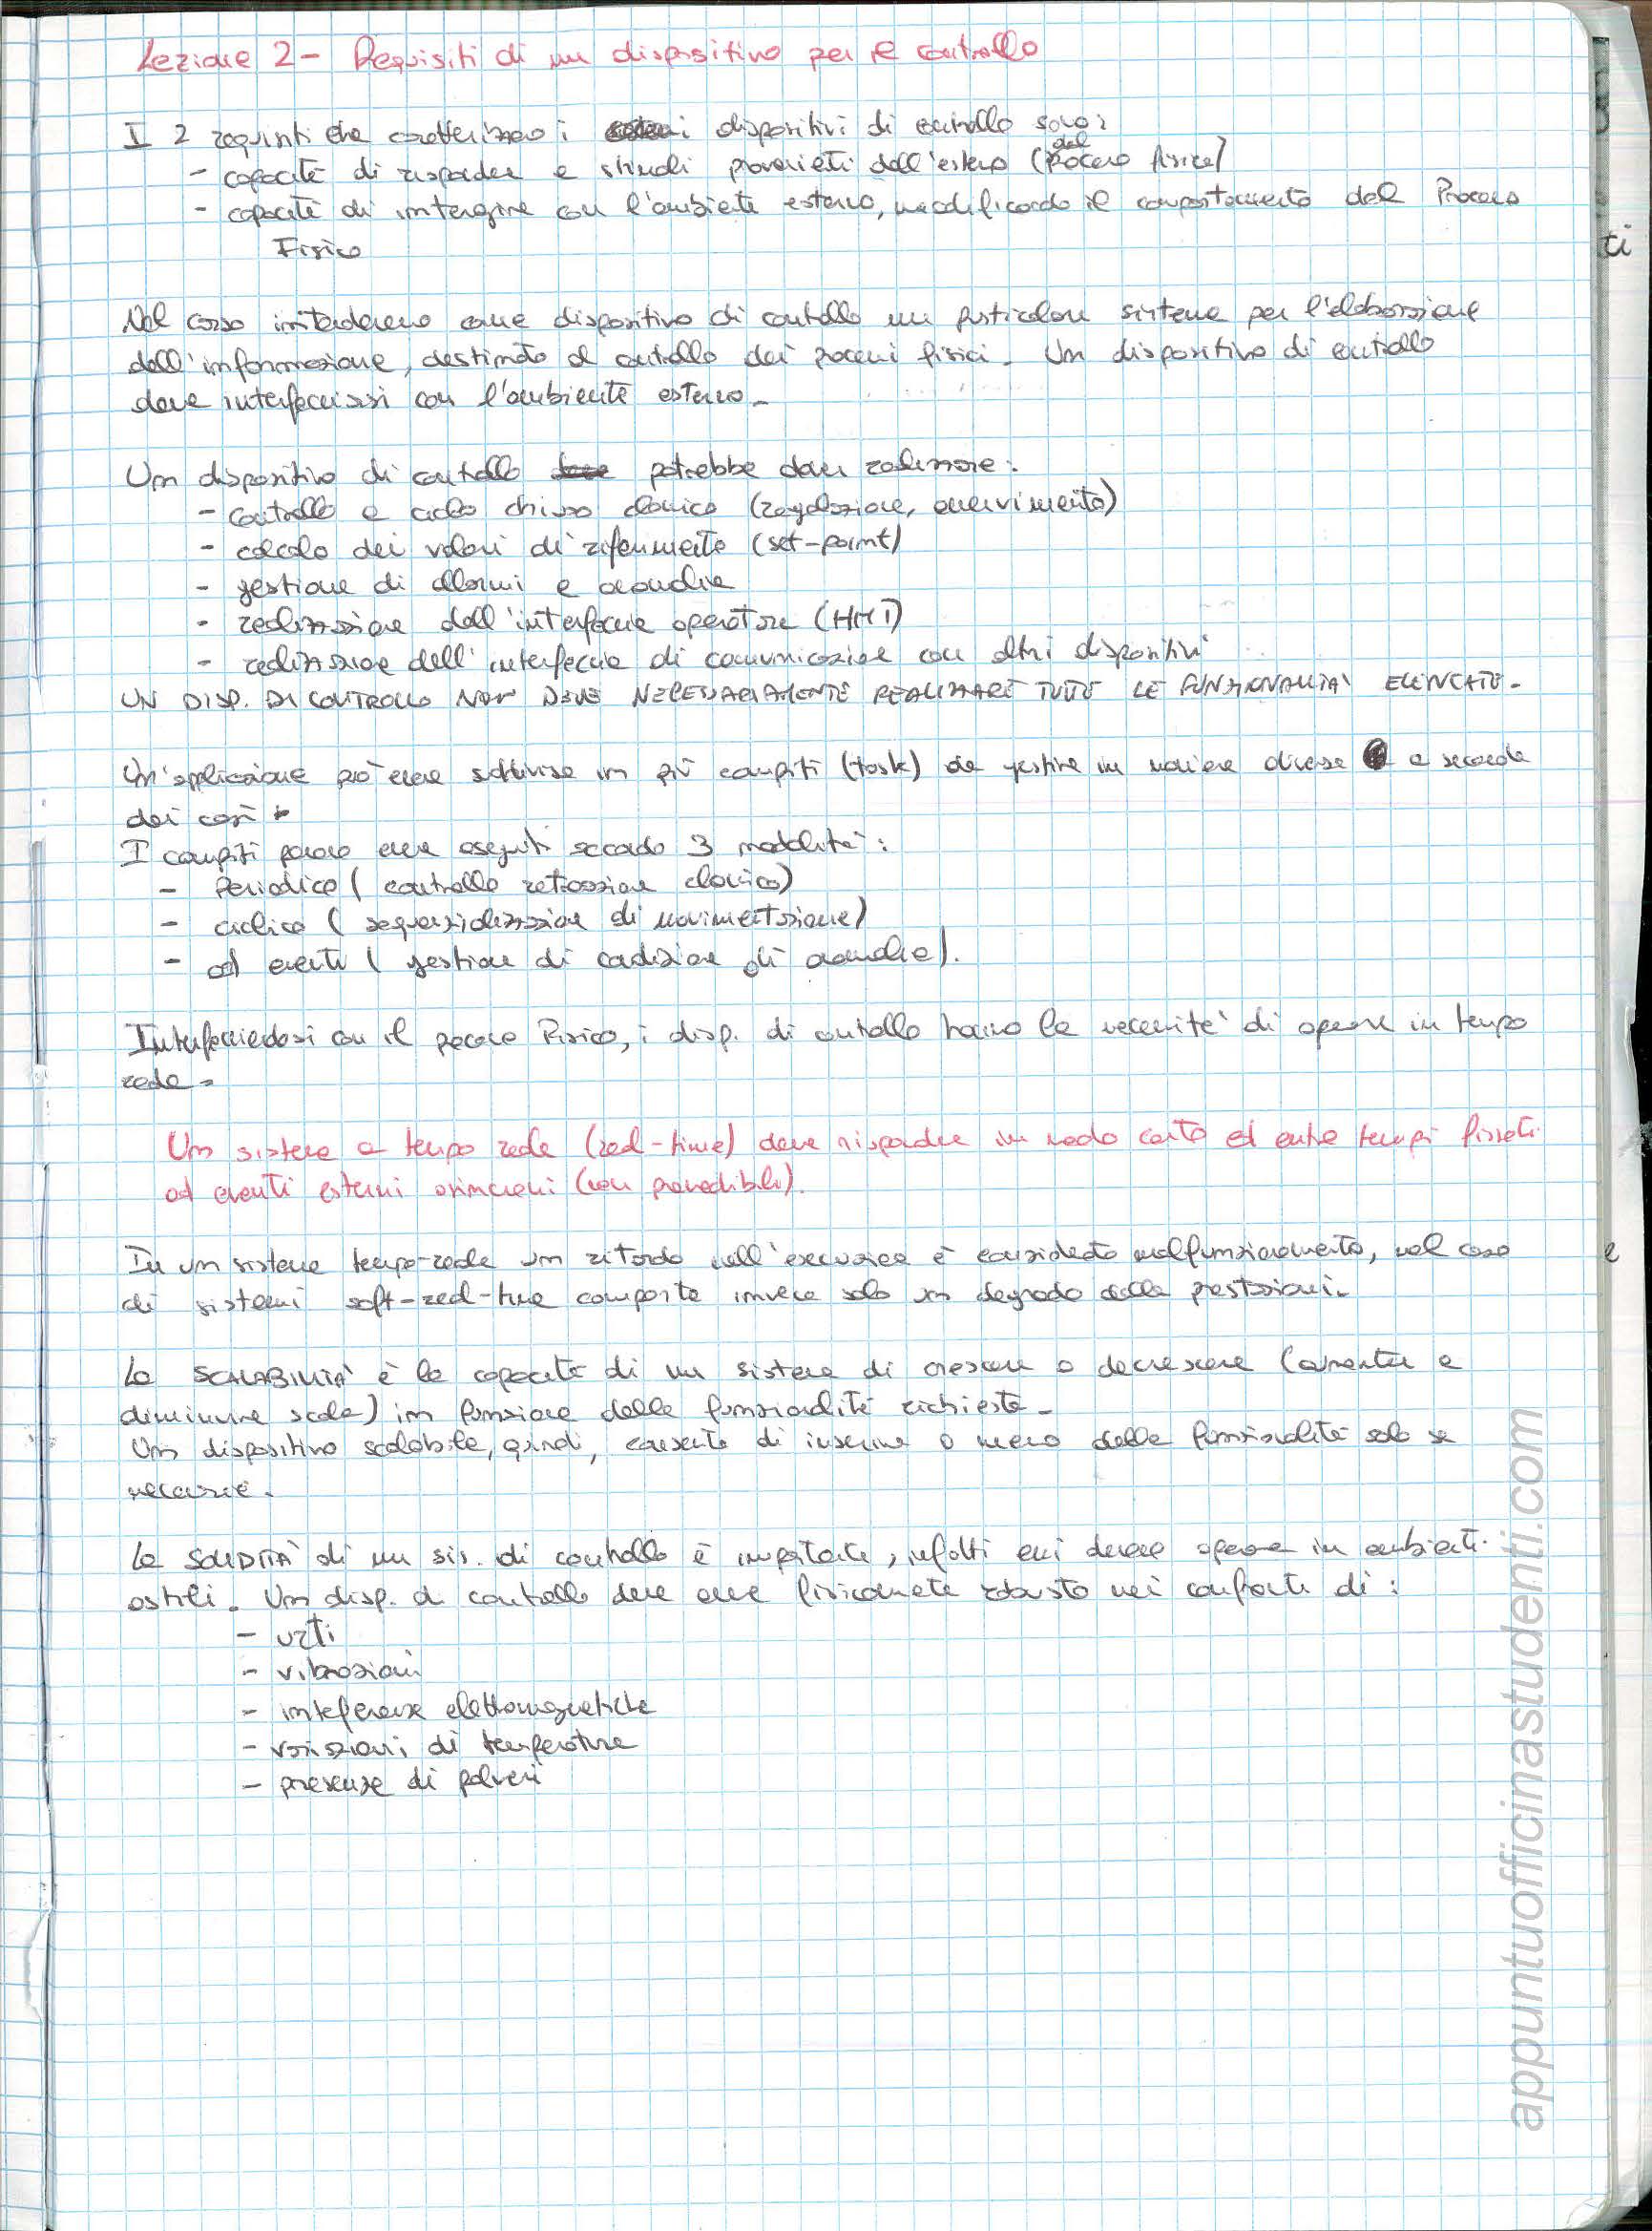 Lezione 2 - Requisiti di un dispositivo per il controllo
I 2 requisiti che caratterizzano i dispositivi di controllo sono:
- capacità di rispondere a stimoli provenienti dall'esterno (dal processo fisico)
- capacità di interagire con l'ambiente esterno, modificando il comportamento del Processo
Fisico
Nel corso intenderemo come dispositivo di controllo un particolare sistema per l'elaborazione
dell'informazione, destinato al controllo dei processi fisici. Un dispositivo di controllo
deve interfacciarsi con l'ambiente esterno.
Un dispositivo di controllo potrebbe dover realizzare:
- controllo a ciclo chiuso classico (regolazione, asservimento)
- calcolo dei valori di riferimento (set-point)
- gestione di allarmi e anomalie
- realizzazione dell'interfaccia operatore (HMI)
- realizzazione dell'interfaccia di comunicazione con altri dispositivi
UN DISP. DI CONTROLLO NON DEVE NECESSARIAMENTE REALIZZARE TUTTE LE FUNZIONALITA' ELENCATE.
Un'applicazione può essere suddivisa in più compiti (task) da gestire in maniera diversa a seconda
dei casi.
I compiti possono essere eseguiti secondo 3 modalità:
- Periodica (controllo retroazione classico)
- ciclica (sequenzializzazione di movimentazione)
- ad eventi (gestione di condizione di anomalie).
Interfacciandosi con il processo Fisico, i disp. di controllo hanno la necessità di operare in tempo
reale.
Un sistema a tempo reale (real-time) deve rispondere in modo certo ed entro tempi fissati
ad eventi esterni asincroni (non prevedibili).
In un sistema tempo-reale un ritardo nell'esecuzione è considerato malfunzionamento, nel caso
di sistemi soft-real-time comporta invece solo un degrado delle prestazioni.
La SCALABILITA' è la capacità di un sistema di crescere o decrescere (aumentare e
diminuire scala) in funzione delle funzionalità richieste.
Un dispositivo scalabile, quindi, consente di inserire o meno delle funzionalità solo se
necessarie.
La SOLIDITA' di un sis. di controllo è importante, infatti essi devono operare in ambienti
ostili. Un disp. di controllo deve essere fisicamente robusto nei confronti di:
- urti
- vibrazioni
- inteferenze elettromagnetiche
- variazioni di temperatura
- presenza di polveri
appuntuofficinastudenti.com
ti
e